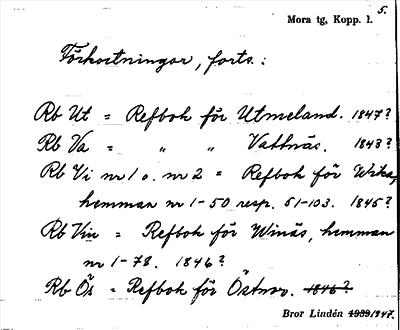 5.
Mora tg, Kopp. l.
Förkortningar, forts.:
Rb Ut = Refbok för Utmeland. 1847?
Rb Va = " " Vattnäs. 1843?
Rb Vi nr 1 o. nr 2 = Refbok för Wika,
hemman nr 1-50 resp. 51-103. 1845?
Rb Vin = Refbok för Winäs, hemman
nr 1-78. 1846?
Rb Ös = Refbok för Östnor. 1846?
Bror Lindén 1939/1947.